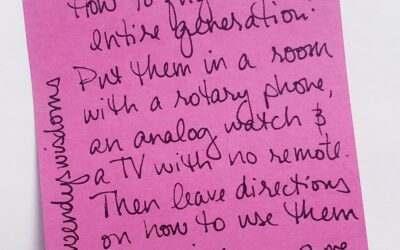 How to
entire generation:
Put them in a room
with a rotary phone,
an analog watch &
a TV with no remote.
Then leave directions
on how to use them
wendyswisdoms